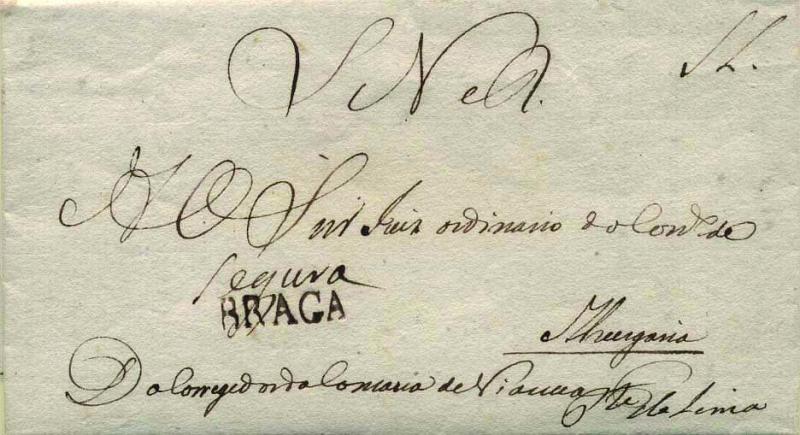 S N e R. S L.
A O Snr Juiz ordinario do Con.º de
Segura
BRAGA
Albergaria
Do Corregedor da Comarca de Vianna Pte de Lima